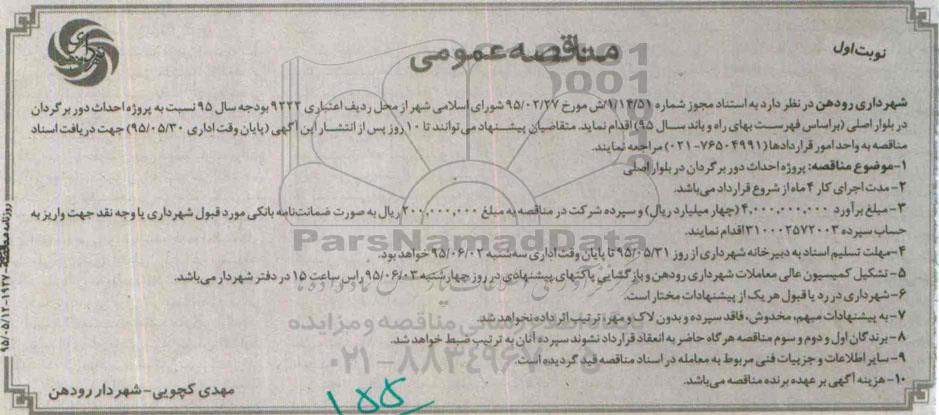 نوبت اول
مناقصه عمومی
شهرداری رودهن در نظر دارد به استناد مجوز شماره ۱/۱۴/۵۱/ش مورخ ۹۵/۰۲/۲۷ شورای اسلامی شهر از محل ردیف اعتباری ۹۲۲۲ بودجه سال ۹۵ نسبت به پروژه احداث دور برگردان
در بلوار اصلی (براساس فهرست بهای راه و باند سال ۹۵) اقدام نماید. متقاضیان پیشنهاد می توانند تا ۱۰ روز پس از انتشار این آگهی (پایان وقت اداری ۹۵/۰۵/۳۰) جهت دریافت اسناد
مناقصه به واحد امور قراردادها (۷۶۵۰۴۹۹۱-۰۲۱) مراجعه نمایند.
۱-موضوع مناقصه: پروژه احداث دور برگردان در بلوار اصلی
۲- مدت اجرای کار ۴ ماه از شروع قرارداد می‌باشد.
۳- مبلغ برآورد ۴,۰۰۰,۰۰۰,۰۰۰ (چهار میلیارد ریال) و سپرده شرکت در مناقصه به مبلغ ۲۰۰,۰۰۰,۰۰۰ ریال به صورت ضمانت‌نامه بانکی مورد قبول شهرداری یا وجه نقد جهت واریز به
حساب سپرده ۳۱۰۰۰۳۵۷۲۰۰۳ اقدام نمایند.
۴-مهلت تسلیم اسناد به دبیرخانه شهرداری از روز ۹۵/۰۵/۳۱ تا پایان وقت اداری سه‌شنبه ۹۵/۰۶/۰۲ خواهد بود.
۵- تشکیل کمیسیون عالی معاملات شهرداری رودهن و بازگشایی پاکتهای پیشنهادی در روز چهارشنبه ۹۵/۰۶/۰۳ راس ساعت ۱۵ در دفتر شهردار می‌باشد.
۶-شهرداری در رد یا قبول هر یک از پیشنهادات مختار است.
۷- به پیشنهادات مبهم، مخدوش، فاقد سپرده و بدون لاک و مهر، ترتیب اثر داده نخواهد شد.
۸- برندگان اول و دوم و سوم مناقصه هرگاه حاضر به انعقاد قرارداد نشوند سپرده آنان به ترتیب ضبط خواهد شد.
۹- سایر اطلاعات و جزییات فنی مربوط به معامله در اسناد مناقصه قید گردیده است.
۱۰- هزینه آگهی بر عهده برنده مناقصه می‌باشد.
مهدی کچویی-شهردار رودهن
ParsNamadData
۱۵۵